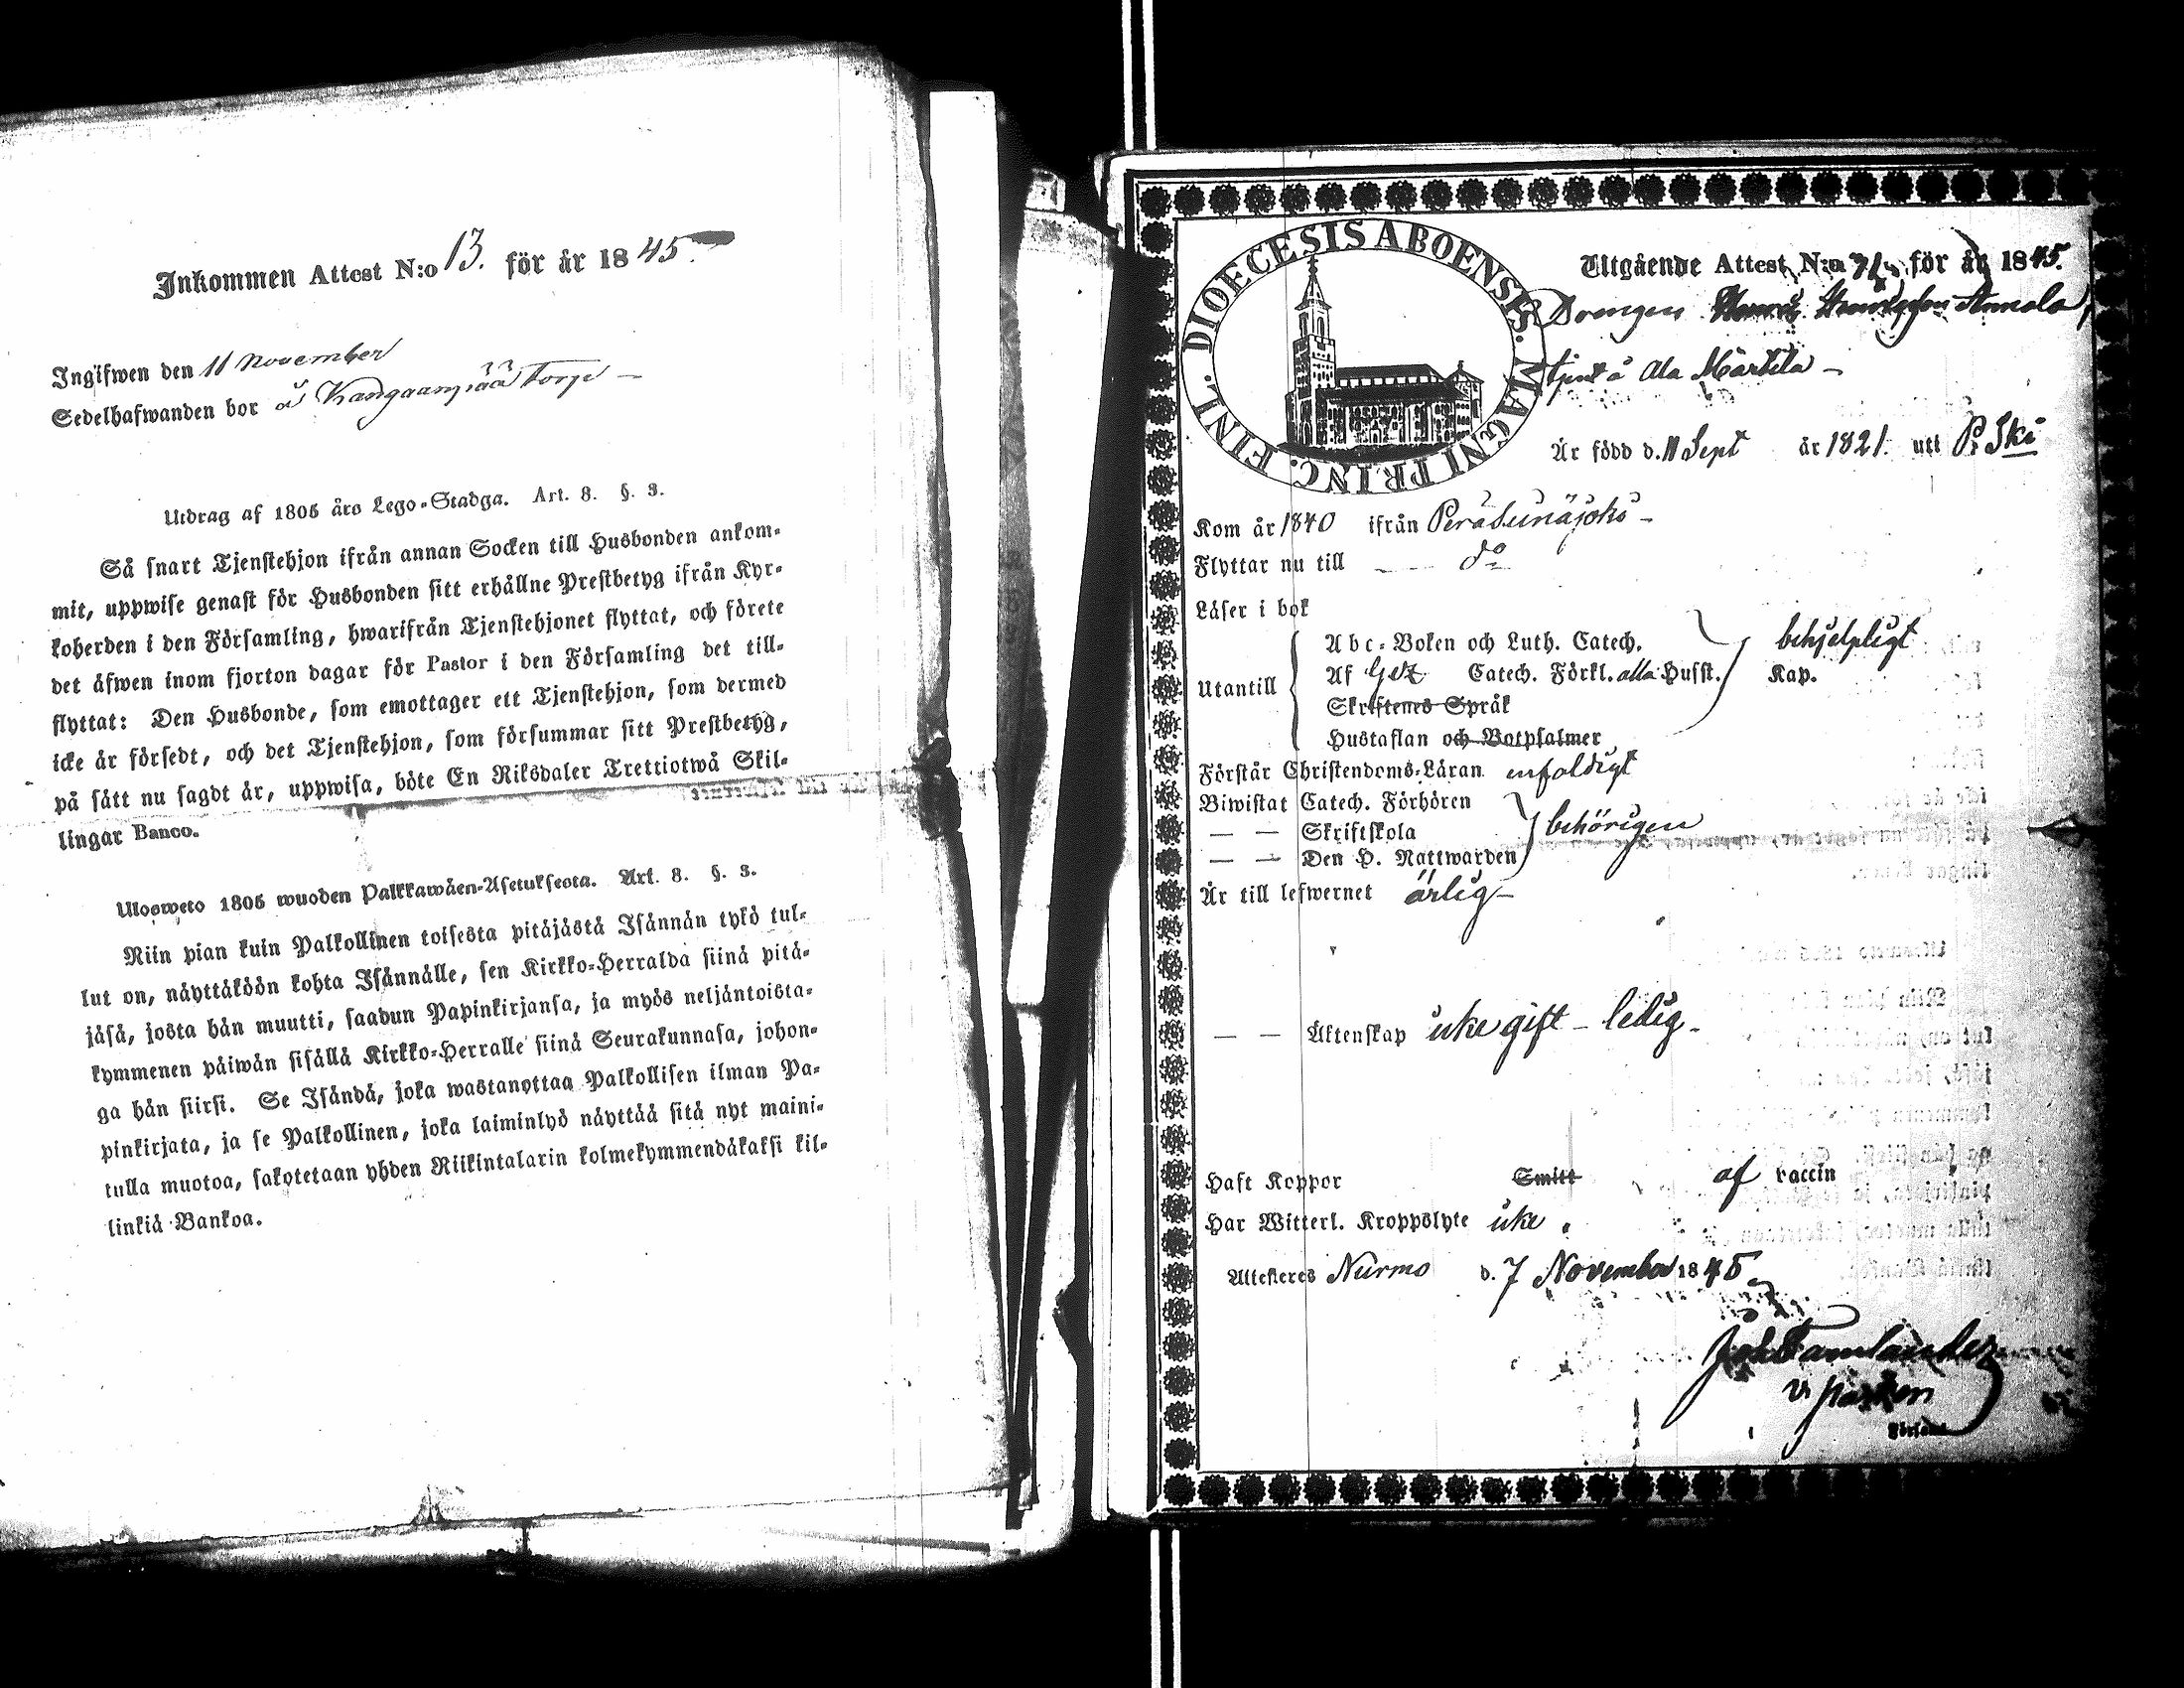 Inkommen Attest N:o 13. för år 1845.
Ingifwen den 11 November
Sedelhafwanden bor å Kangaanpää Torp –
Utdrag af 1805 års Lego-Stadga. Art. 8. §. 3.
Så snart Tjenstehjon ifrån annan Socken till Husbonden ankom-
mit, uppwise genast för Husbonden sitt erhållne Prestbetyg ifrån Kyr-
koherden i den Församling, hwarifrån Tjenstehjonet flyttat, och förete
det äfwen inom fjorton dagar för Pastor i den Församling det till-
flyttat: Den Husbonde, som emottager ett Tjenstehjon, som dermed
icke är försedt, och det Tjenstehjon, som försummar sitt Prestbetyg,
på sätt nu sagdt är, uppwisa, böte En Riksdaler Trettiotwå Skil-
lingar Banco.
Ulosweto 1805 wuoden Palkkawäen-Asetuksesta. Art. 8. §. 3.
Niin pian kuin Palkollinen toisesta pitäjästä Isännän tykö tul-
lut on, näyttäköön kohta Isännälle, sen Kirkko-Herralda siinä pitä-
jäsä, josta hän muutti, saadun Papinkirjansa, ja myös neljäntoista-
kymmenen päiwän sisällä Kirkko-Herralle siinä Seurakunnasa, johon-
ga hän siirsi. Se Isändä, joka wastanottaa Palkollisen ilman Pa-
pinkirjata, ja se Palkollinen, joka laiminlyö näyttää sitä nyt maini-
tulla muotoa, sakotetaan yhden Riikintalarin kolmekymmendäkaksi kil-
linkiä Bankoa.
DIOECESIS ABOENSIS. MAGNI PRINC. FINL.
Utgående Attest N:o för år 1845.
Drengen Henrik Henriksson Annala,
tjent å Ala Marttila –
Är född d. 11 Sept år 1821. uti P. Ski
Kom år 1840 ifrån Peräseinäjoki –
Flyttar nu till – – do
Läser i bok
Utantill
Abc-Boken och Luth. Catech. behjelpligt
Af Catech. Förkl. alla Husst. Kap.
Skriftenes Språk
Hustaflan och Botpsalmer
Förstår Christendoms-Läran enfaldigt
Biwistat Catech. Förhören
— — Skriftskola behörigen
— — Den H. Nattwarden
Är till lefwernet ärlig –
— — Äktenskap icke gift – ledig –
Haft Koppor Smitt af vaccin
Har Witterl. Kroppslyte icke
Attesteres Nurmo d. 7 November 1845.
Joh. Tamlander
v. pastor